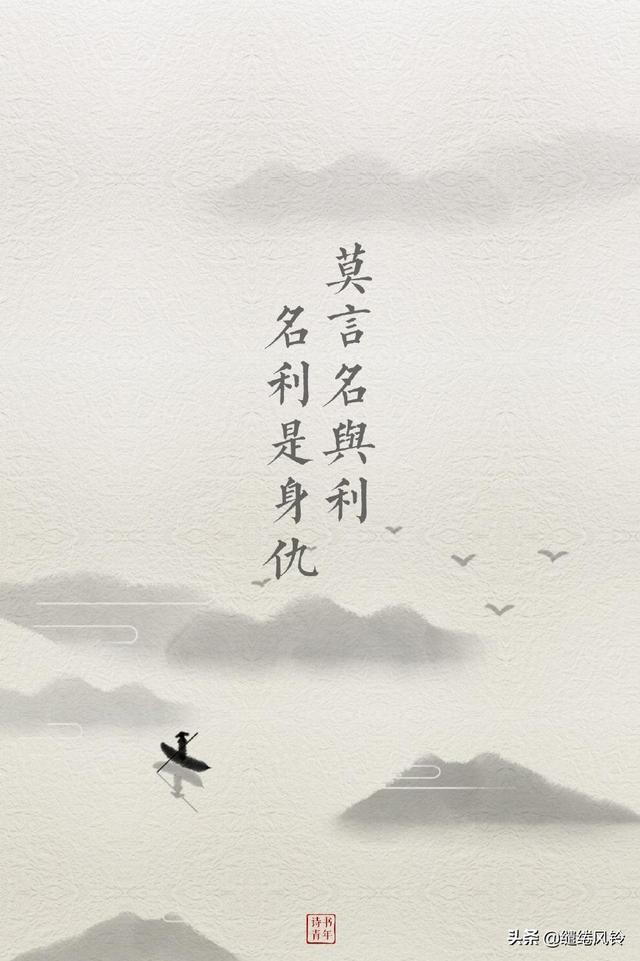 莫言名與利
名利是身仇
诗书
青年
头条 @缱绻风铃